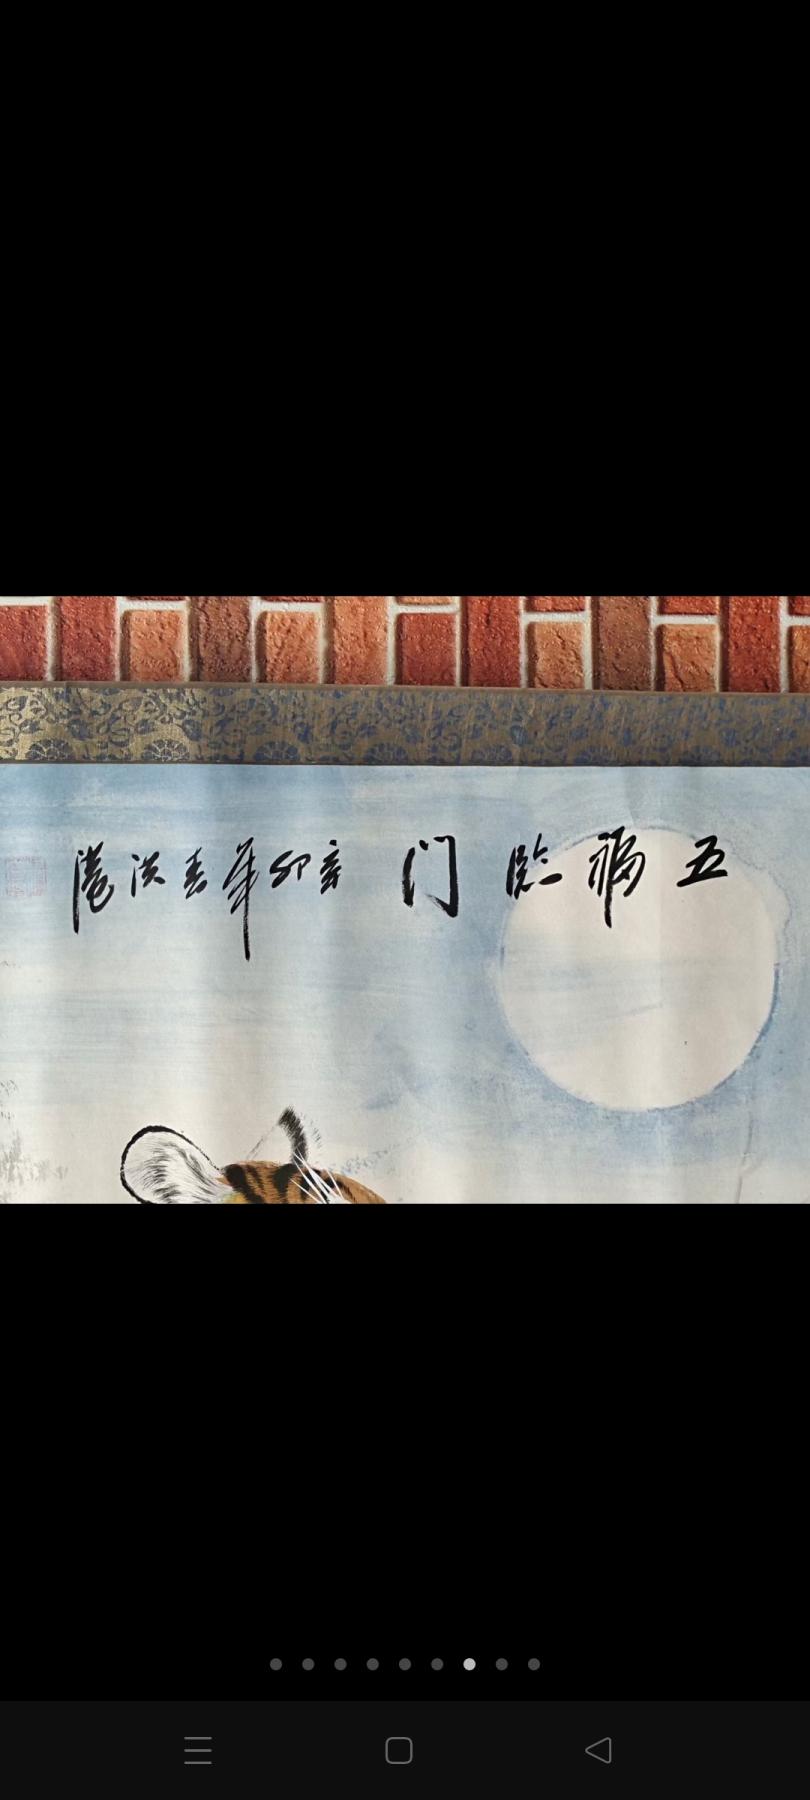 五福臨门 辛卯年春洪